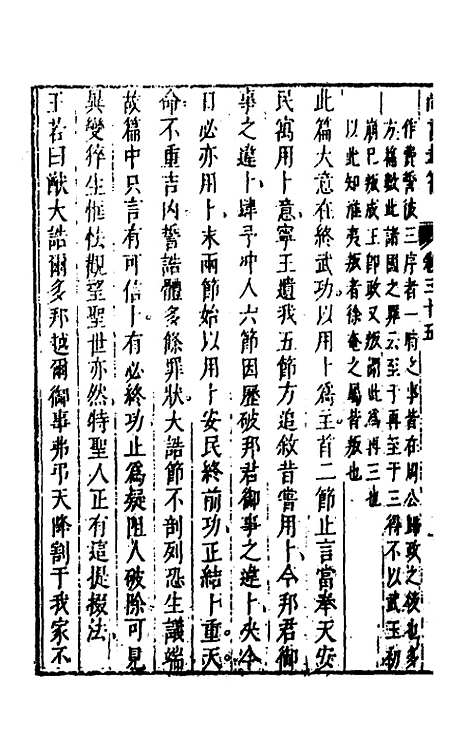 尚書𫝊翼 卷三十五
作費誓彼三序者一時之事皆在周公歸政之後也多
方篇數此諸國之罪云至于再至于三得不以武王初
崩已叛成王即政又叛謂此爲再三也
以此知淮夷叛者徐奄之屬皆叛也
此篇大意在終武功以用卜爲主首二節止言當奉天安
民寓用卜意寧王遺我五節方追敘昔嘗用卜今邦君御
事之違卜肆予冲人六節因歷破邦君御事之違卜央今
日必亦用卜末兩節始以用卜安民終前功正結卜重天
命不重吉凶誓誥體多條罪狀大誥節不剖列恐生議端
故篇中只言有可信卜有必終功止爲疑阻人破除可見
異變猝生恇怯觀望聖世亦然特聖人正有這提掇法
王若曰猷大誥爾多邦越爾御事弗弔天降割于我家不